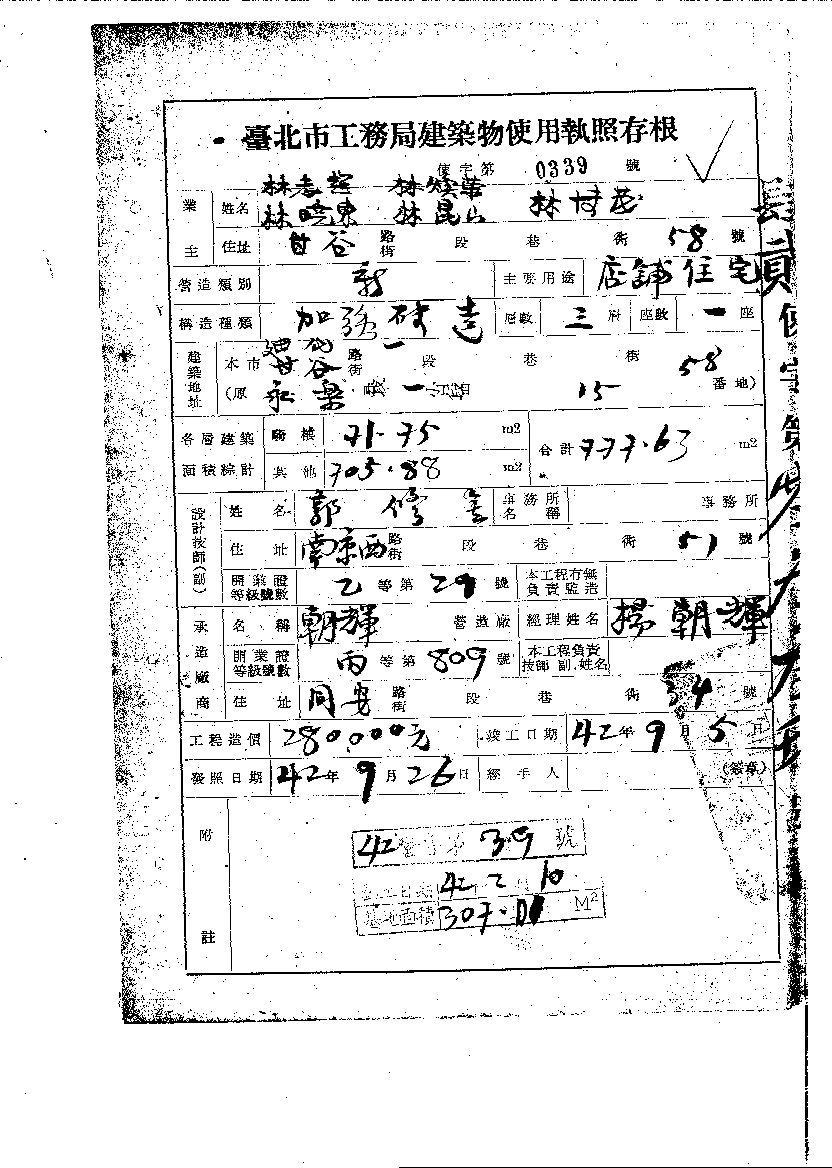 臺北市工務局建築物使用執照存根
使字第 0339 號
林 林
業主 姓名 林曉東 林崑山 林
住址 甘谷 路街 段 巷 衖 58 號
營造類別 新 主要用途 店舖住宅
構造種類 加強磚造 層數 三層 座數 一座
建築地址 本市 甘谷 路街 段 巷 衖 58
(原 永樂 段 一 15 番地)
各層建築面積綜計 騎樓 71.75 m2 合計 777.63 m2
其他 705.88 m2
設計技師(副) 姓名 郭 事務所名稱 事務所
住址 南京西 路街 段 巷 衖 51 號
開業證等級號數 乙 等第 29 號 本工程有無負責監造
承造廠商 名稱 朝輝 營造廠 經理姓名 楊朝輝
開業證等級號數 丙 等第 809 號 本工程負責技師 副 姓名
住址 同安 路街 段 巷 衖 34 號
工程造價 280,000元 竣工日期 42年9月5日
發照日期 42年9月26日 經手人 (簽章)
附註
42 字第 39 號
工日期 42 2 10
基地面積 307.01 M2